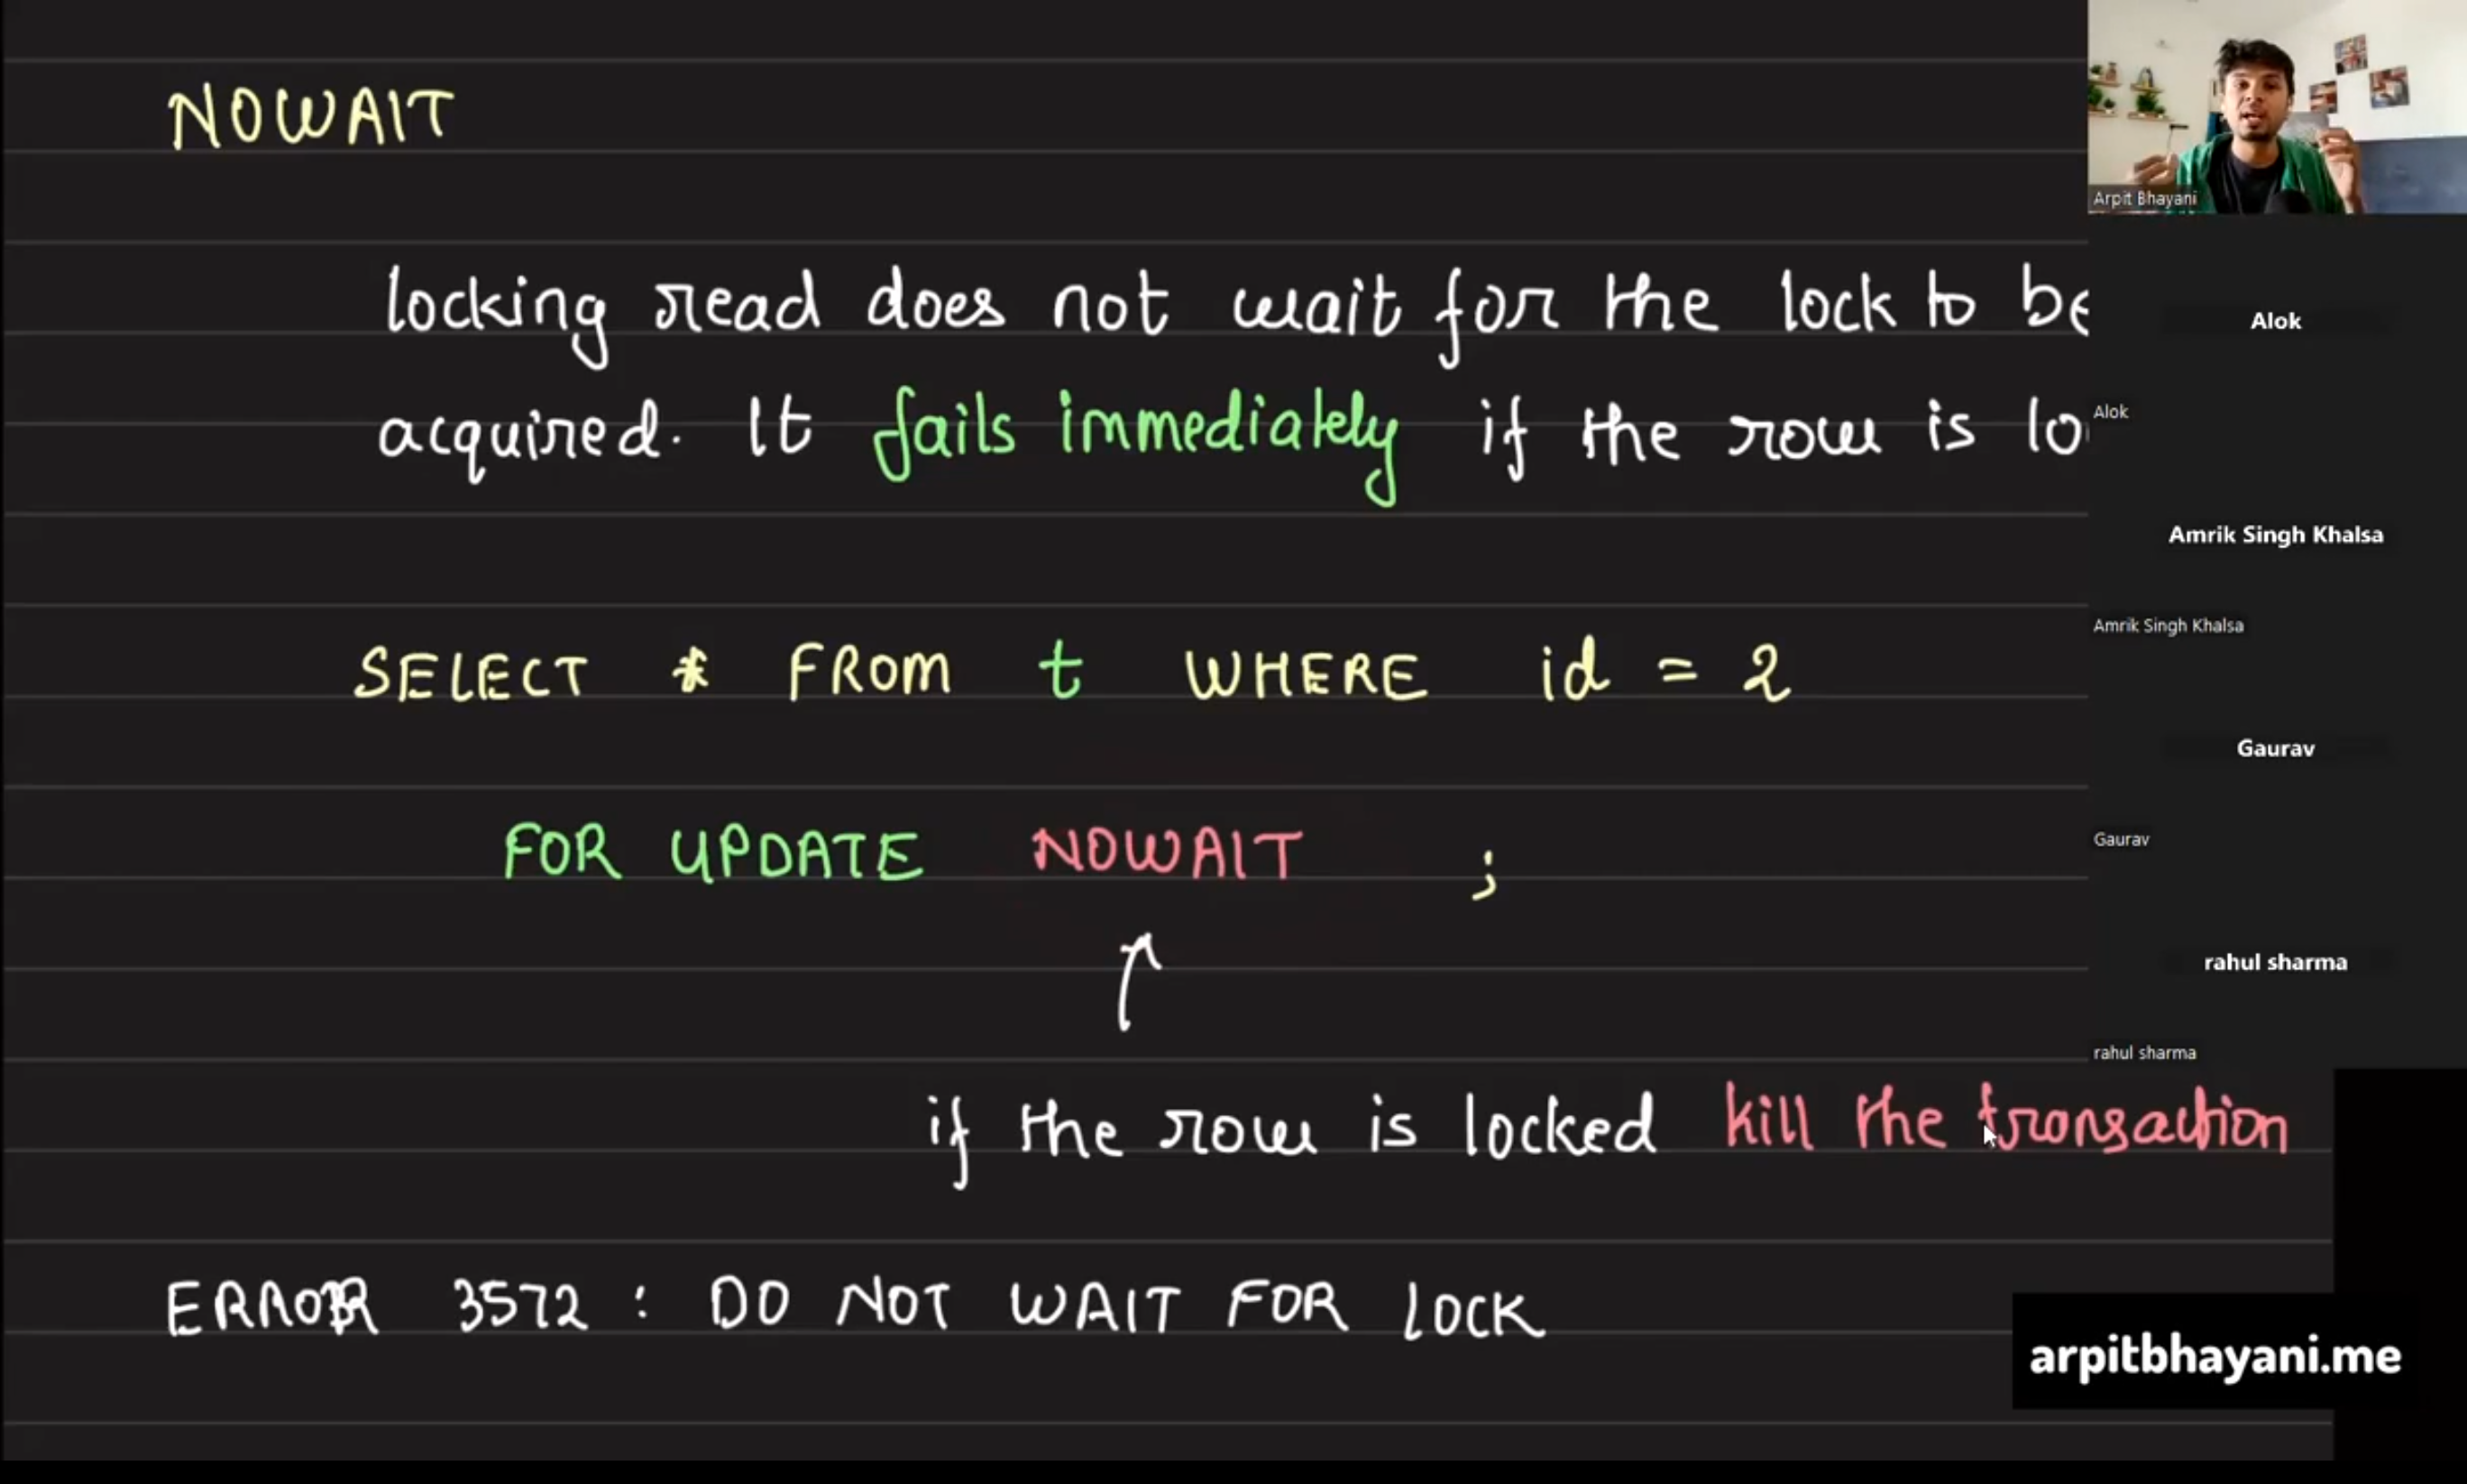 NOWAIT
locking read does not wait for the lock to be
acquired. It fails immediately if the row is lo
SELECT * FROM t WHERE id = 2
FOR UPDATE NOWAIT ;
if the row is locked kill the transaction
ERROR 3572 : DO NOT WAIT FOR LOCK
Arpit Bhayani
Alok
Alok
Amrik Singh Khalsa
Amrik Singh Khalsa
Gaurav
Gaurav
rahul sharma
rahul sharma
arpitbhayani.me